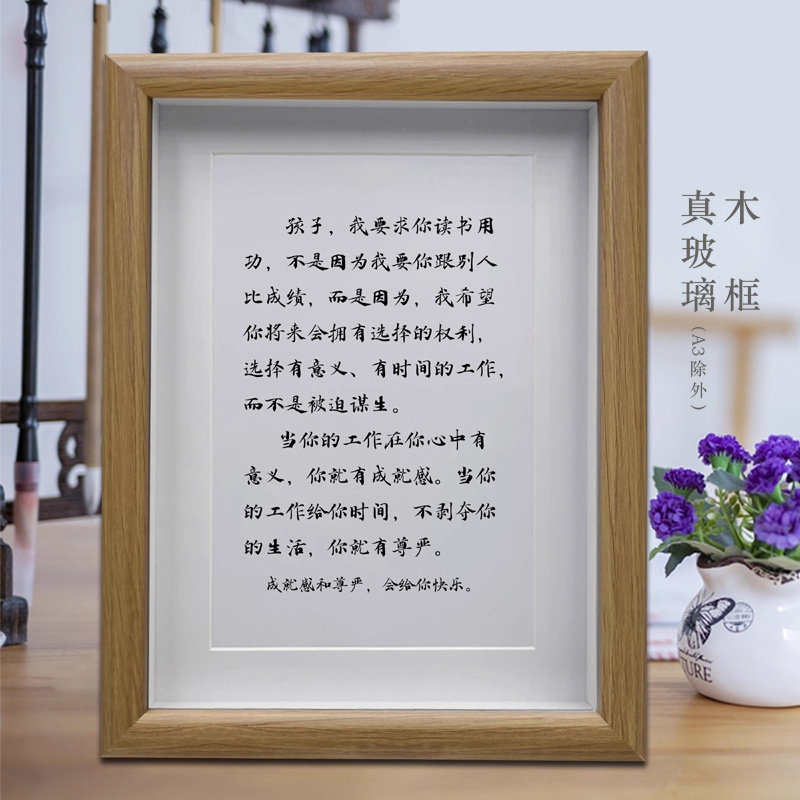 孩子，我要求你读书用
功，不是因为我要你跟别人
比成绩，而是因为，我希望
你将来会拥有选择的权利，
选择有意义、有时间的工作，
而不是被迫谋生。
当你的工作在你心中有
意义，你就有成就感。当你
的工作给你时间，不剥夺你
的生活，你就有尊严。
成就感和尊严，会给你快乐。
木框
真玻璃(A3除外)